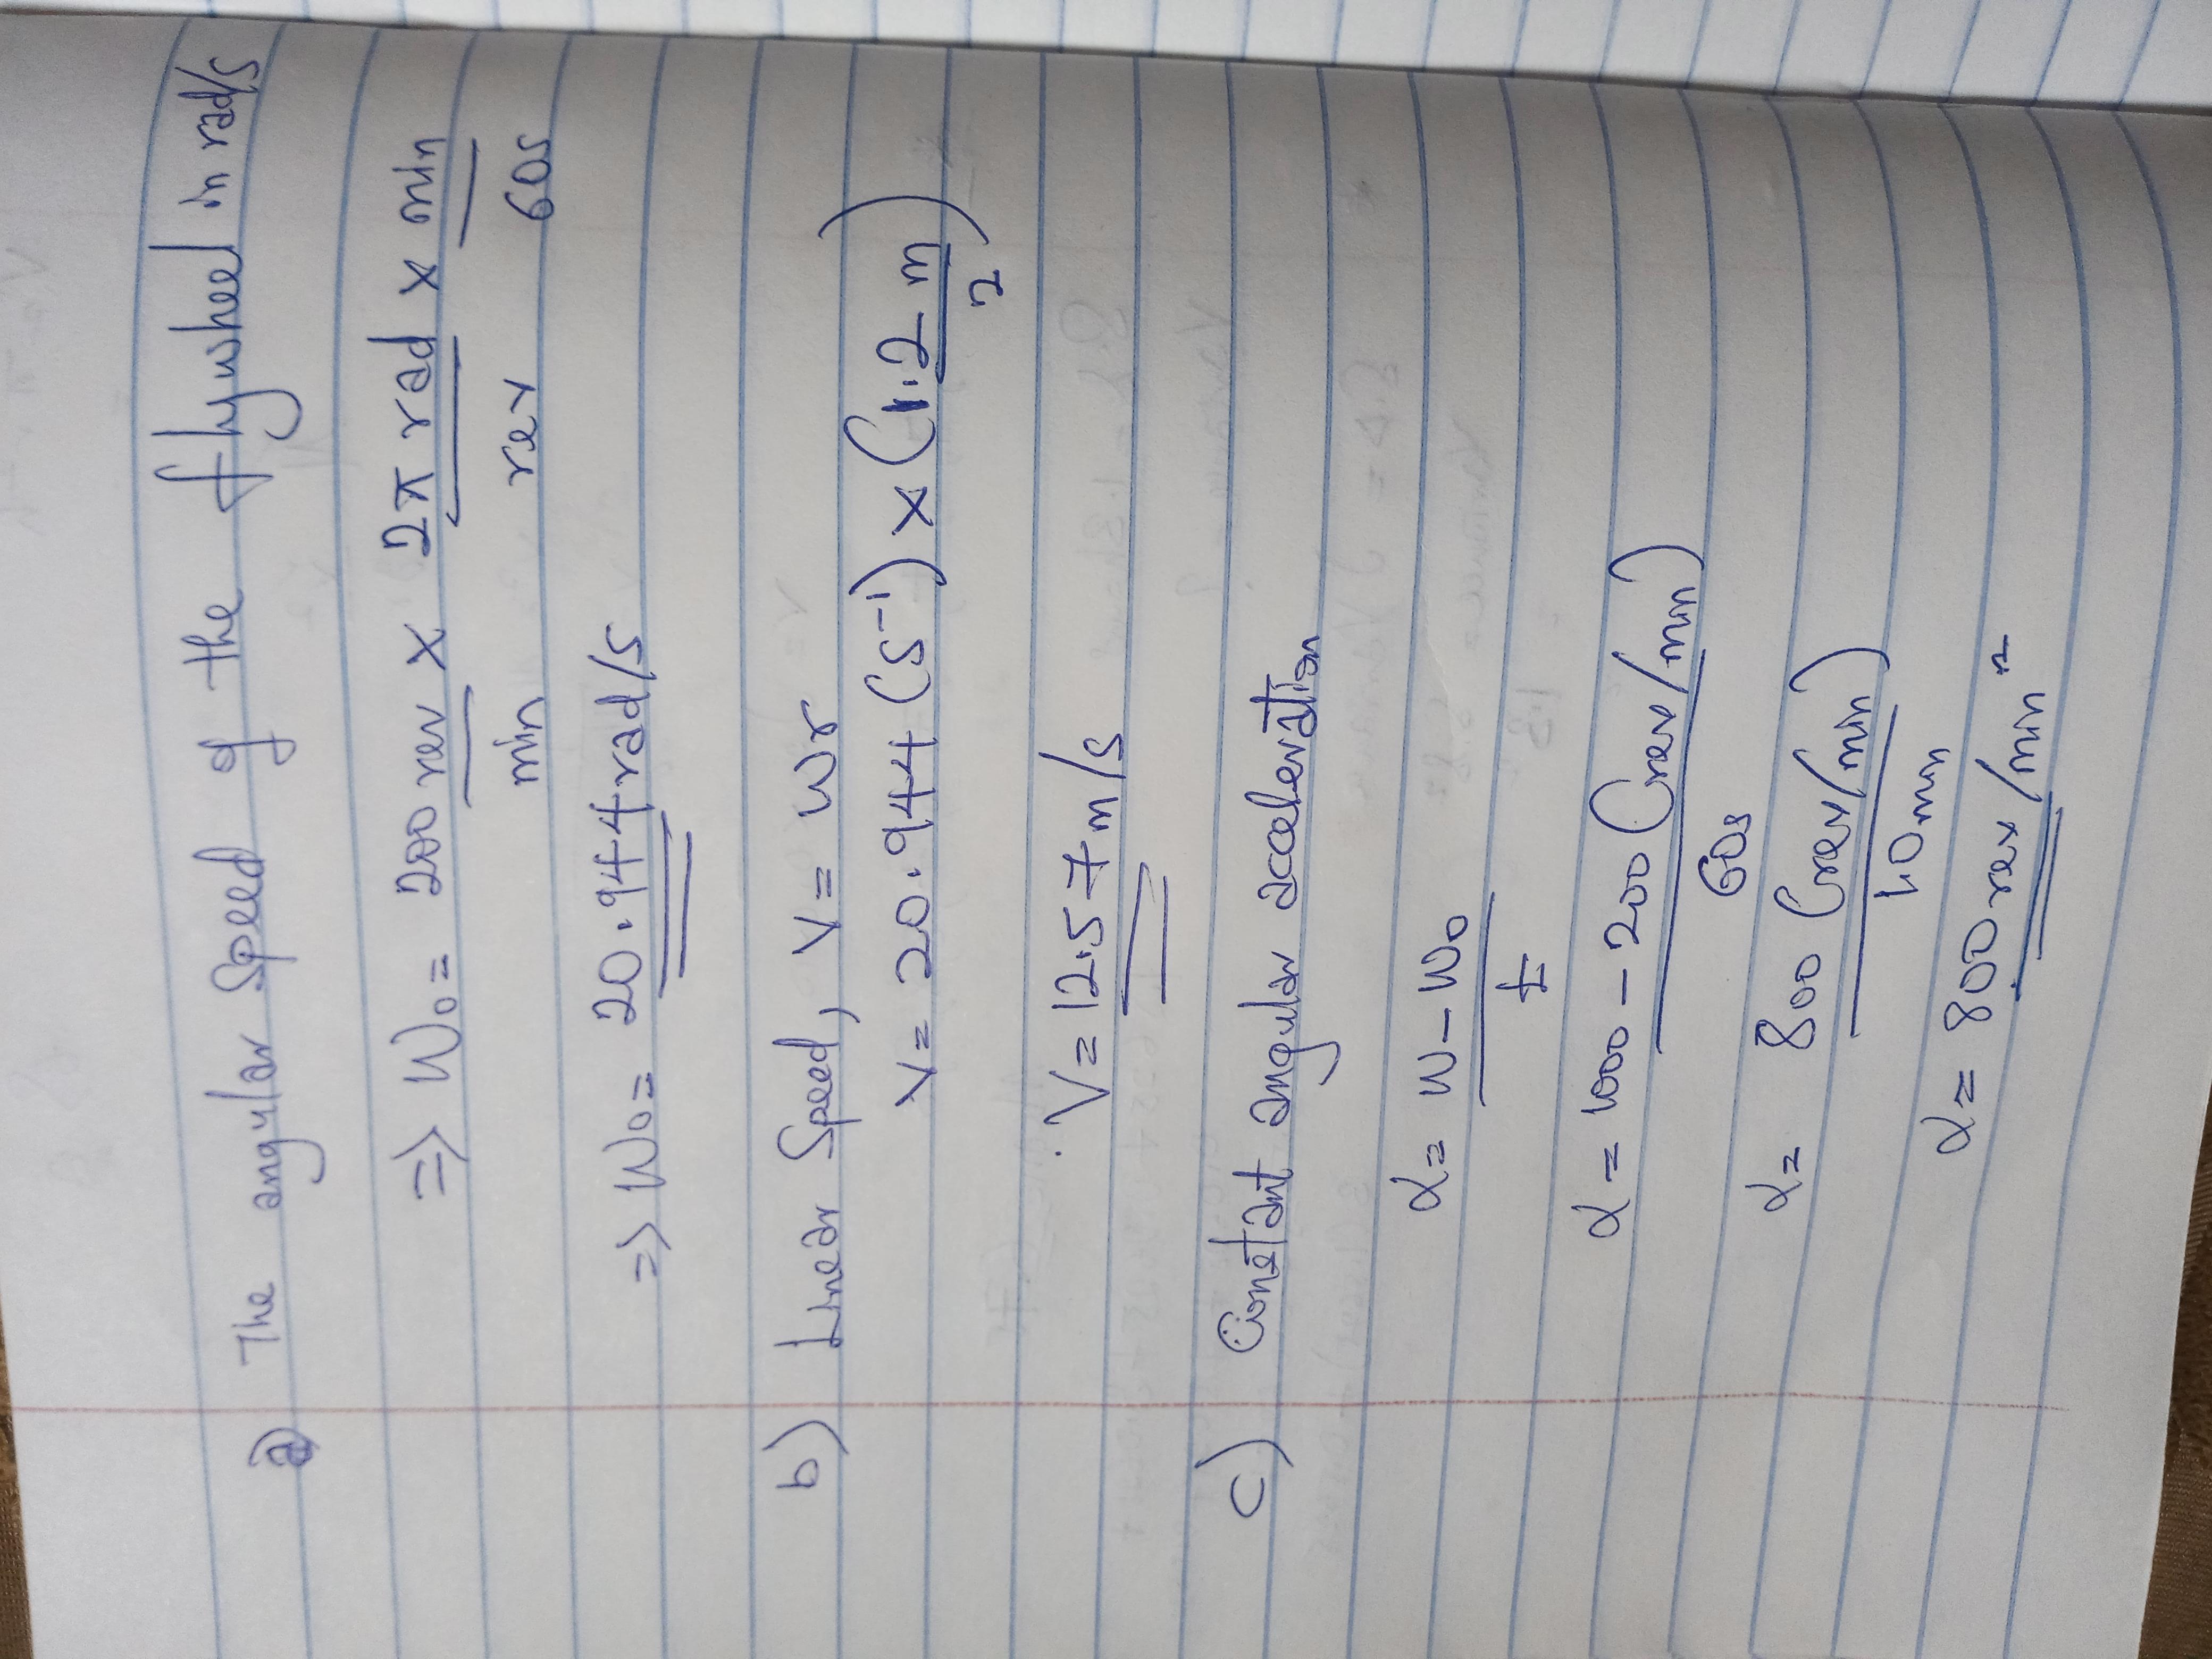 a) The angular Speed of the flywheel in rad/s
=> W₀ = 200 rev/min x 2π rad/rev x min/60s
=> W₀ = 20.944 rad/s
b) Linear Speed, V = Wr
V = 20.944 (s⁻¹) x (1.2 m/2)
V = 12.57 m/s
c) Constant angular acceleration
α = W - W₀/t
α = 1000 - 200 (rev/min)/60s
α = 800 (rev/min)/1.0 min
α = 800 rev/min²